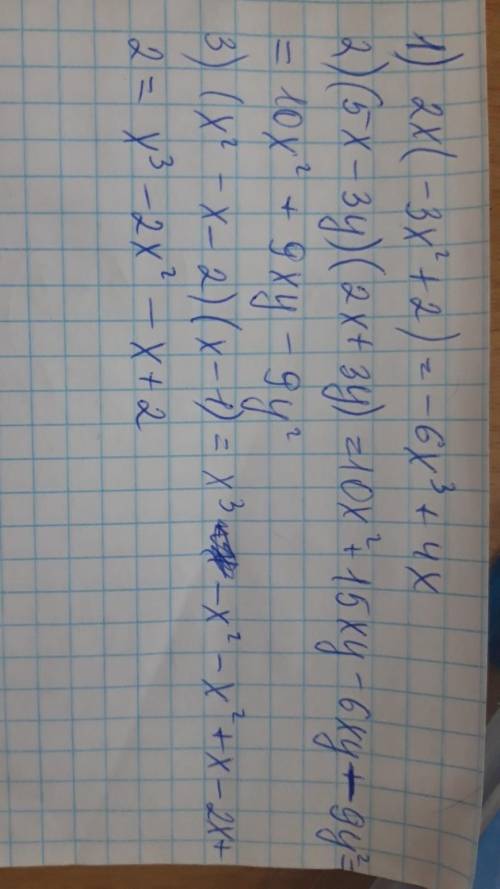 1) 2x(-3x²+2)=-6x³+4x
2)(5x-3y)(2x+3y)=10x²+15xy-6xy-9y²=
=10x²+9xy-9y²
3) (x²-x-2)(x-1)=x³-x²-x²+x-2x+
2=x³-2x²-x+2